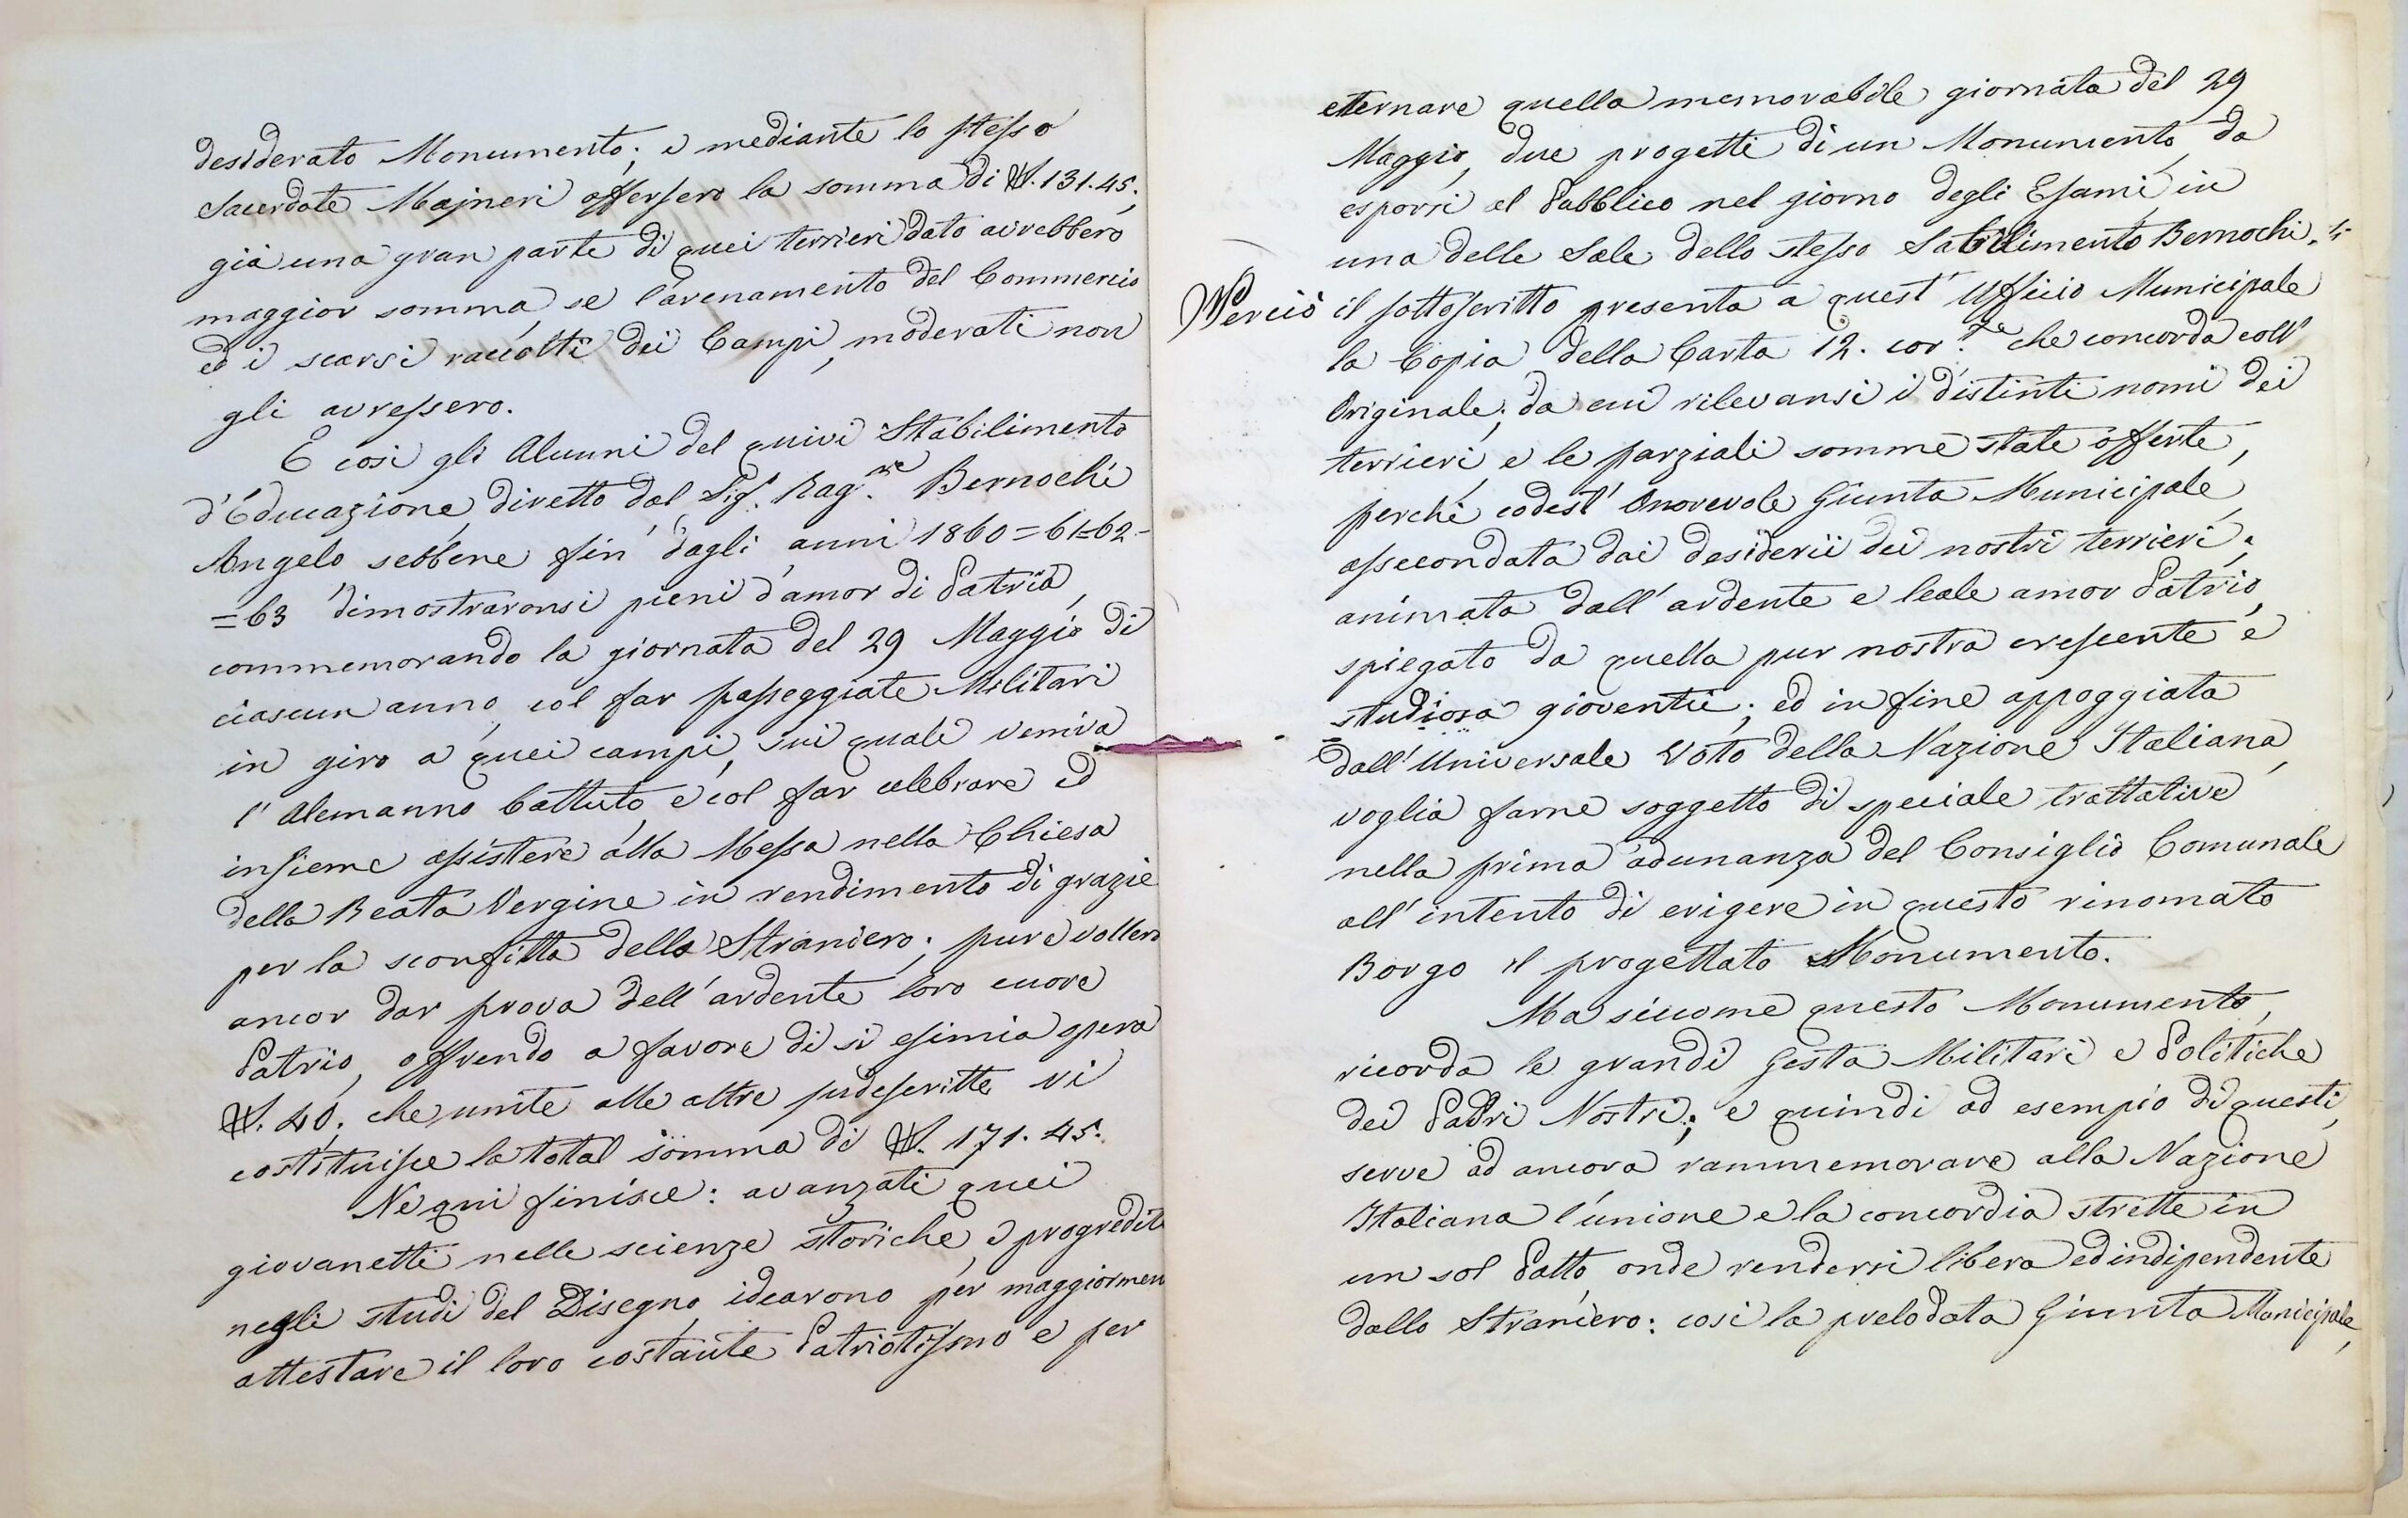 desiderato Monumento; e mediante lo stesso
Sacerdote Majneri offersero la somma di £. 131.45;
già una gran parte di quei terrieri dato avrebbero
maggior somma, se l'arenamento del Commercio
ed i scarsi raccolti dei Campi, moderati non
gli avessero.
E così gli Alunni del quivi Stabilimento
d'Educazione, diretto dal Sig.r Rag.re Bernochi
Angelo sebbene fin dagli anni 1860=61=62-
=63 dimostraronsi pieni d'amor di Patria,
commemorando la giornata del 29 Maggio di
ciascun anno, col far passeggiate Militari
in giro a quei campi, sui quali veniva
l'Alemanno battuto, e col far celebrare ed
insieme assistere alla Messa nella Chiesa
della Beata Vergine in rendimento di grazie
per la sconfitta dello Straniero; pure vollero
ancor dar prova dell'ardente loro cuore
Patrio, offrendo a favore di sì esimia opera
£. 40. che unite alle altre sudescritte vi
costituisce la total somma di £. 171.45.
Ne qui finisce: avanzati quei
giovanetti nelle scienze storiche, e progrediti
negli studi del Disegno, idearono per maggiormen
attestare il loro costante Patriotismo e per
etternare quella memorabile giornata del 29
Maggio, due progetti di un Monumento, da
esporsi al Pubblico nel giorno degli Esami in
una delle Sale dello stesso Sabilimento Bernochi.
Perciò il sottoscritto presenta a quest'Ufficio Municipale
la Copia della Carta 12. cor.te che concorda coll'
Originale; da cui rilevansi i distinti nomi dei
terrieri e le parziali somme state offerte,
perché codest'Onorevole Giunta Municipale,
assecondata dai desiderii dei nostri terrieri;
animata dall'ardente e leale amor Patrio,
spiegato da quella pur nostra crescente e
studiosa gioventù; ed in fine appoggiata
dall'Universale Voto della Nazione Italiana,
voglia farne soggetto di speciale trattative
nella prima adunanza del Consiglio Comunale
all'intento di erigere in questo rinomato
Borgo il progettato Monumento.
Ma siccome questo Monumento,
ricorda le grandi Gesta Militari e Politiche
dei Padri Nostri; e quindi ad esempio di questi,
serve ad ancora rammemorare alla Nazione
Italiana l'unione e la concordia strette in
un sol Patto, onde rendersi libera ed indipendente
dallo Straniero: così la prelodata Giunta Municipale,